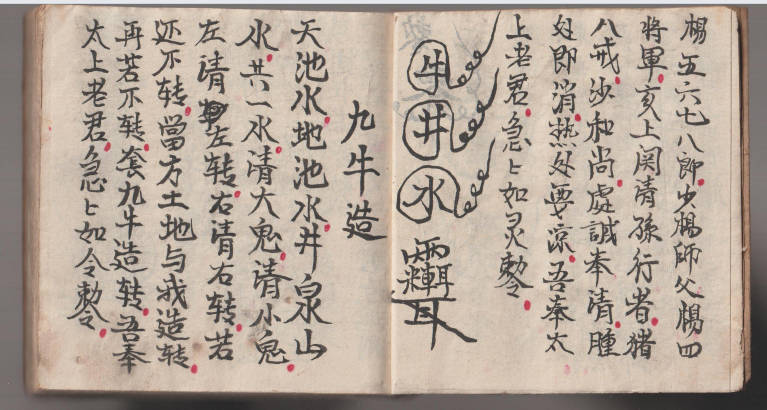 楊五六七八郎少楊師父楊四
將軍亥上関請孫行者猪
八戒沙和尚處誠奉請腫
处即消热处要凉吾奉太
上老君急々如灵勅令
牛
井
水
九牛造
天池水地池水井泉山
水共一水请大鬼请小鬼
左请左转右请右转若
还不转當方土地与我造转
再若不转套九牛造转吾奉
太上老君急々如令勅令